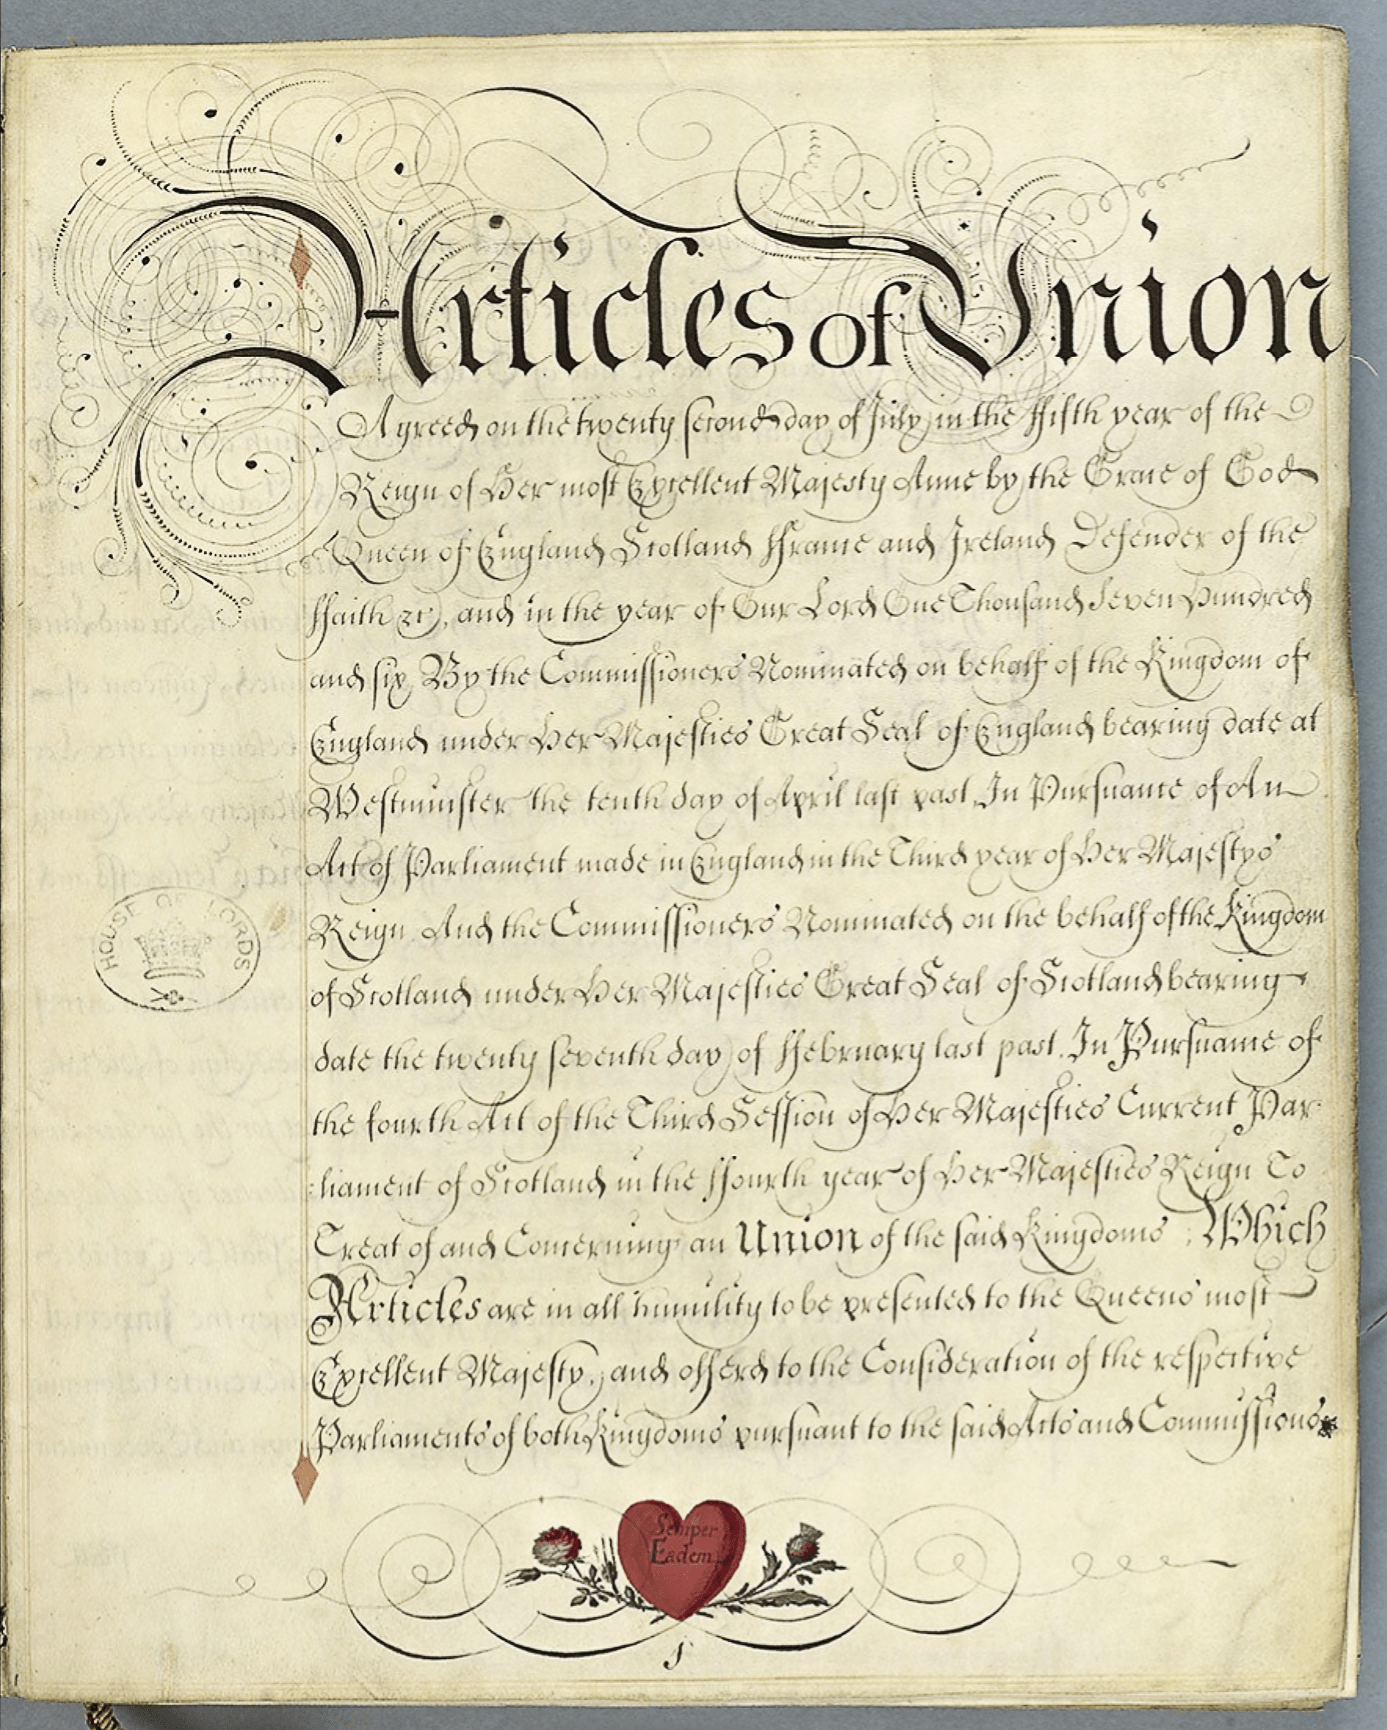 Articles of Union
Agreed on the twenty second day of July in the ffifth year of the
Reign of Her most Excellent Majesty Anne by the Grace of God
Queen of England Scotland ffrance and Ireland Defender of the
ffaith &c, and in the year of Our Lord One Thousand Seven Hundred
and six, By the Commissioners Nominated on behalf of the Kingdom of
England under Her Majesties Great Seal of England bearing date at
Westminster the tenth day of April last past In Pursuance of An
Act of Parliament made in England in the Third year of Her Majestys
Reign And the Commissioners Nominated on the behalf of the Kingdom
of Scotland under Her Majesties Great Seal of Scotland bearing
date the twenty seventh day of ffebruary last past. In Pursuance of
the fourth Act of the Third Session of Her Majesties Current Par
:liament of Scotland in the ffourth year of Her Majesties Reign To
Treat of and Concerning an Union of the said Kingdoms ; Which
Articles are in all humility to be presented to the Queens most
Excellent Majesty, and offerd to the Consideration of the respective
Parliaments of both Kingdoms pursuant to the said Acts and Commissions
HOUSE OF LORDS
Semper
Eadem
1